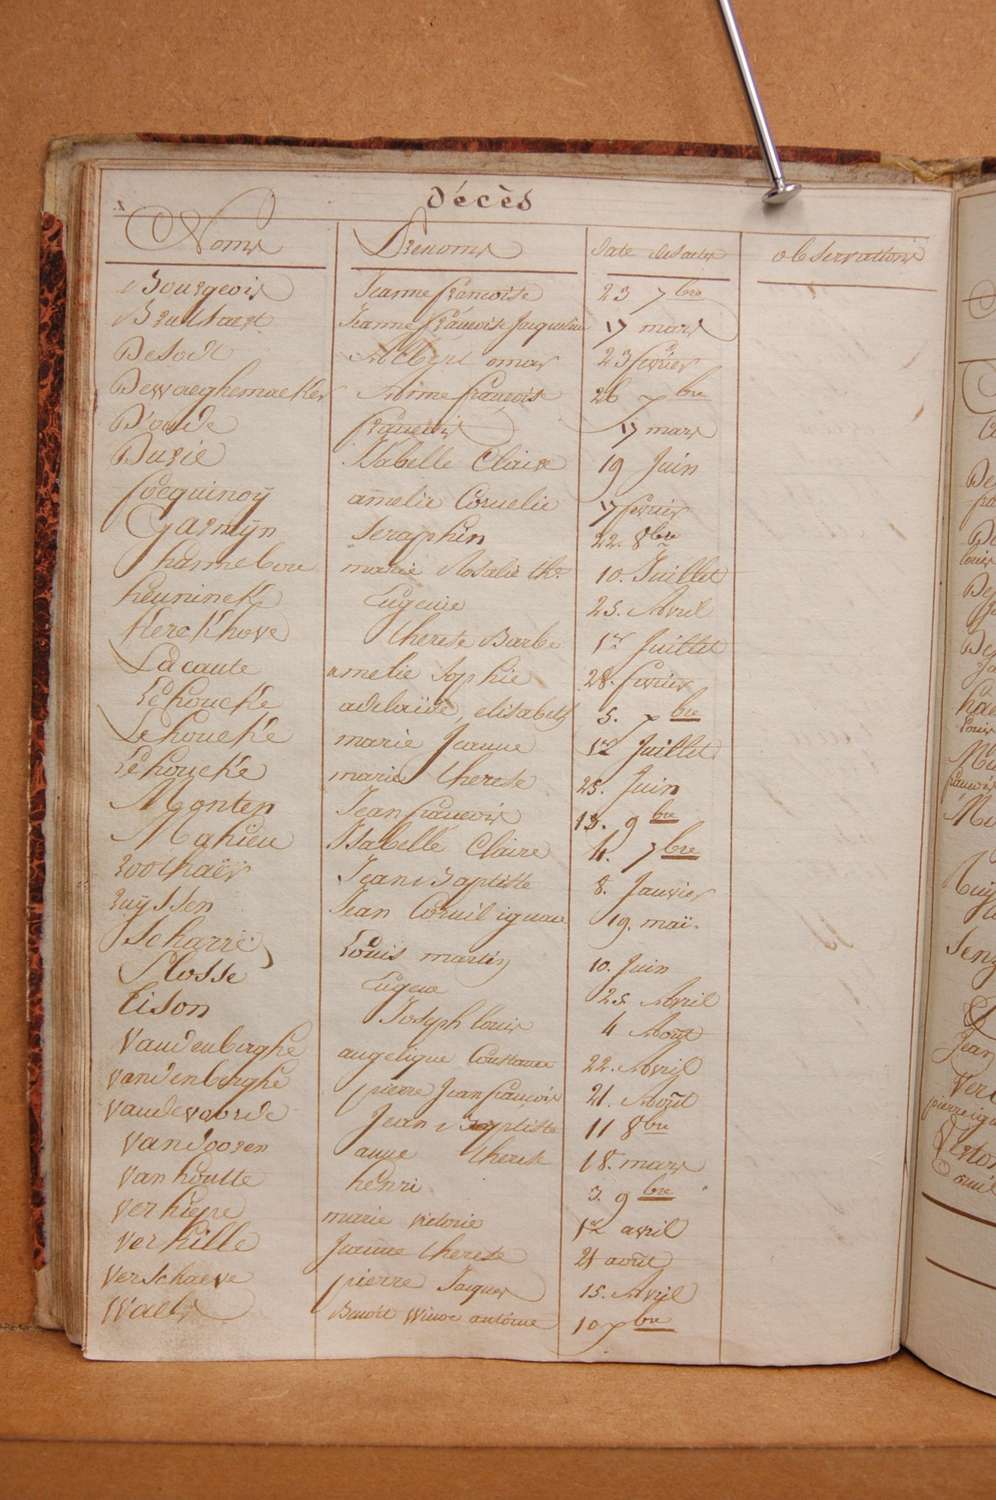 Décès
Noms Prenoms Date des actes observations
Bourgeois Jeanne françoise 23 7bre
Brulbaert Jeanne françoise Jacqueline 17 mars
Desodt Albert omer 23 fevrier
Dewaeghemaeker Anne françoise 26 7bre
D'oude francois 17 mars
Durie Isabelle Claire 19 Juin
focquinoÿ amelie Cornelie 17 fevrier
Garmÿn Seraphin 22. 8bre
hannebou marie Rosalie thse 10. Juillet
heuninck Eugenie 25. Avril
Kerckhove therese Barbe 1er Juillet
Lacante amelie Sophie 28. fevrier
Lehoucke adelaïde, elisabeth 5. 7bre
Lehoucke marie Jeanne 12 Juillet
Lehoucke marie therese 25. Juin
Monten Jean francois 13. 9bre
Mahieu Isabelle Claire 4. 7bre
roothaër Jean Baptiste 8. Janvier
ruÿssen Jean Corneil ignace 19. maï.
Scharre Louis martin 10. Juin
Slosse Eugene 25. Avril
tison Joseph louis 4 Août
Vandenberghe angelique Constance 22. Avril
vandenberghe pierre Jean françois 21. Août
vandevoorde Jean Baptiste 11 8bre
vandooren anne therese 18. mars
van houtte henri 3. 9bre
verhiepe marie victorie 12 avril
verhille Jeanne therese 21 août
verschaeve pierre Jacques 15. Avril
Waels Benoit Winoc antoine 10 xbre